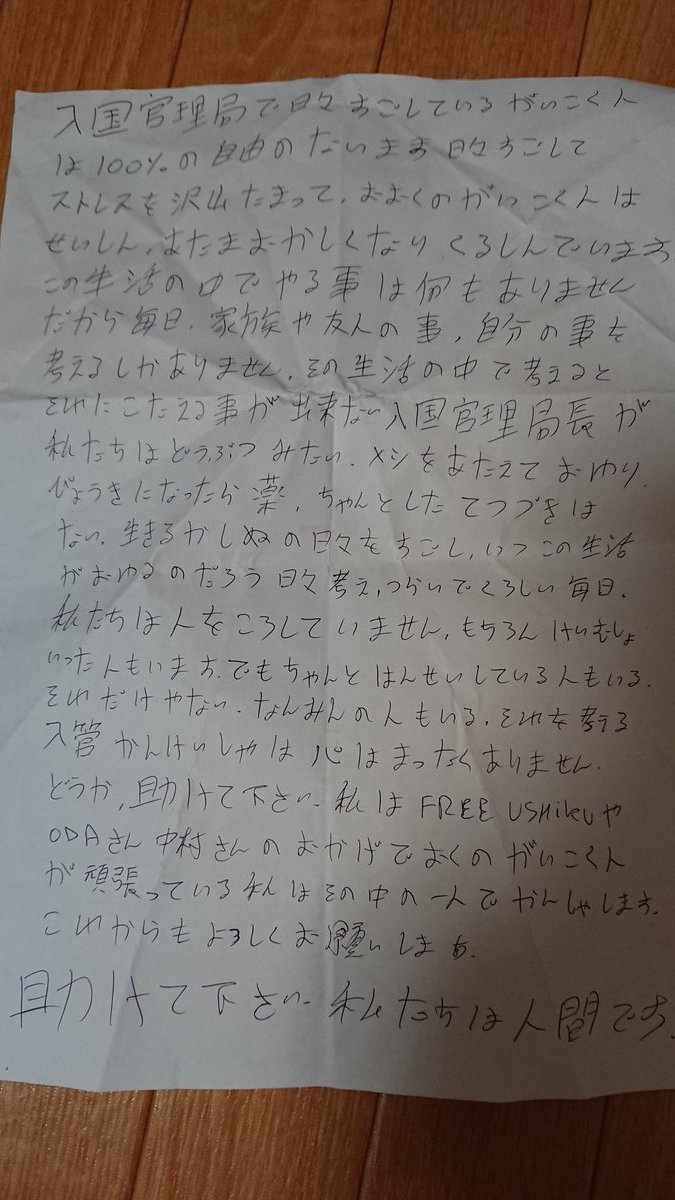 入国官理局で日々すごしているがいこく人
は100%の自由のないまま日々すごして
ストレスを沢山たまって、おおくのがいこく人は
せいしん、あたまおかしくなり、くるしんでいます。
この生活の中でやる事は何もありません
だから毎日、家族や友人の事、自分の事を
考えるしかありません、その生活の中で考えると
それにこたえる事が出来ない入国官理局長が
私たちはどうぶつみたい、メシをあたえておわり、
びょうきになったら薬、ちゃんとしたてつづきは
ない、生きるかしぬの日々をすごし、いつこの生活
がおわるのだろう日々考え、つらいでくるしい毎日、
私たちは人をころしていません、もちろんけいむしょ
いった人もいます。でもちゃんとはんせいしている人もいる。
それだけやない、なんみんの人もいる、それを考える
入管かんけいしゃは心はまったくありません。
どうか、助けて下さい、私はFREE USHIKUや
ODAさん中村さんのおかげでおくのがいこく人
が頑張っている私はその中の一人でかんしゃします。
これからもよろしくお願いします。
助けて下さい、私たちは人間です。